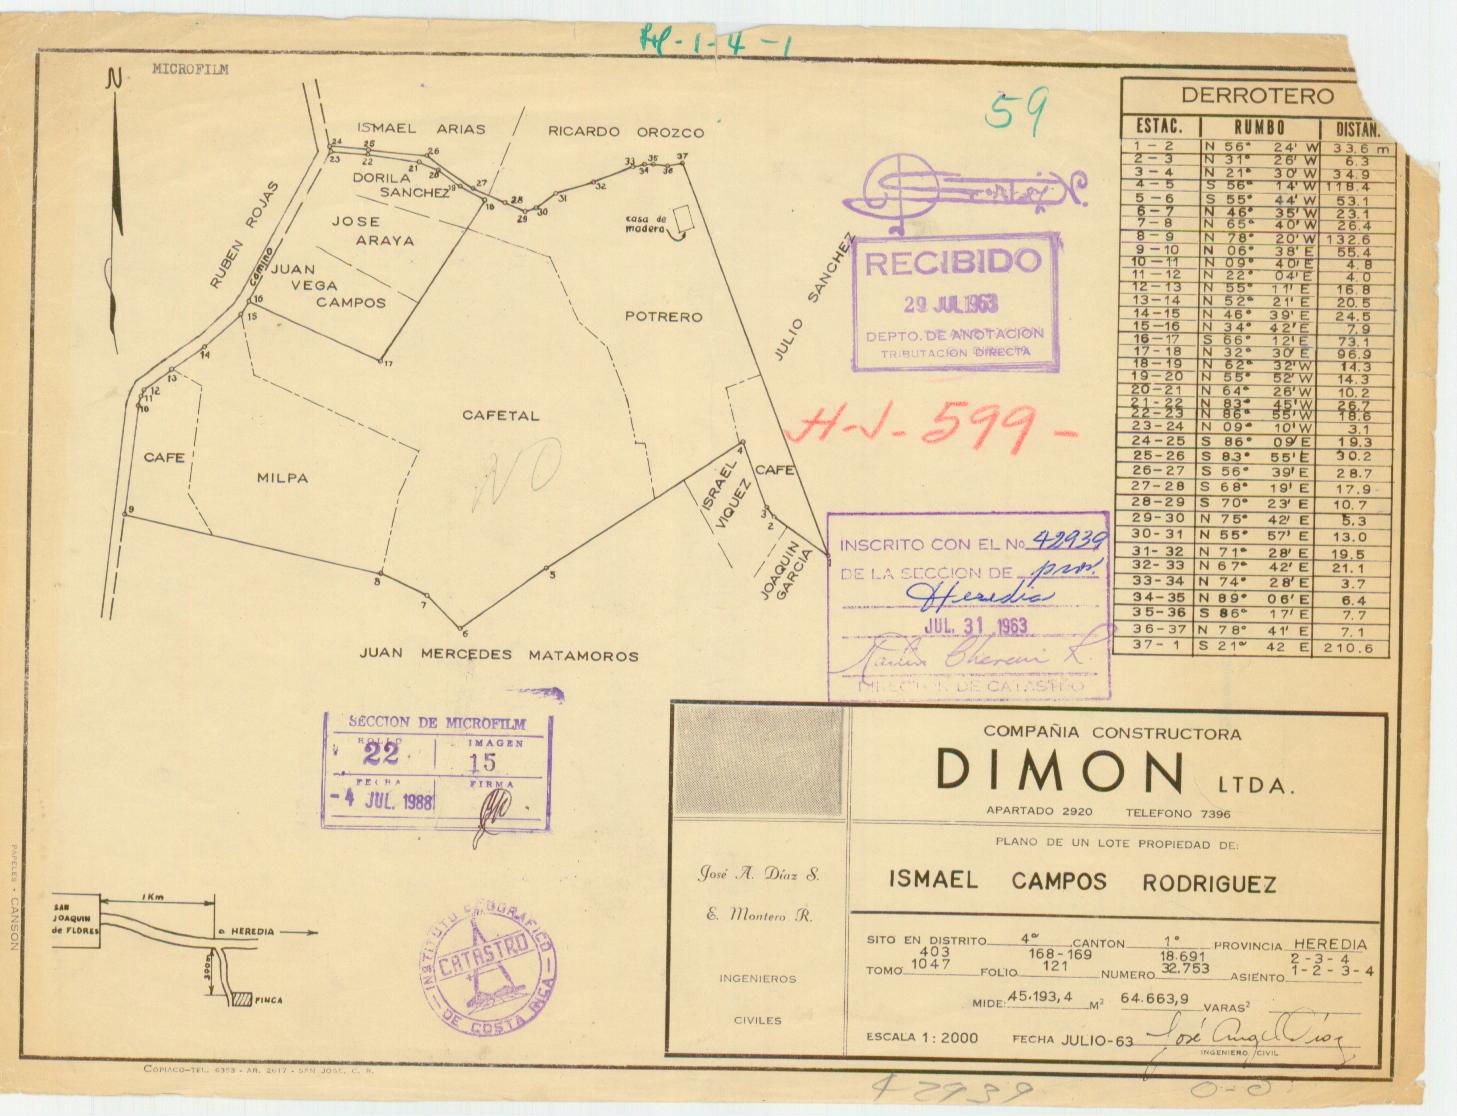 HJ-1-4-1
MICROFILM
N
59
ISMAEL ARIAS
RICARDO OROZCO
DORILA
SANCHEZ
JOSE
ARAYA
RUBEN ROJAS
Camino
JUAN
VEGA
CAMPOS
casa de
madera
POTRERO
JULIO SANCHEZ
CAFETAL
NO
CAFE
MILPA
ISRAEL
VIQUEZ
CAFE
JOAQUIN
GARCIA
JUAN MERCEDES MATAMOROS
RECIBIDO
29 JUL 1963
DEPTO. DE ANOTACION
TRIBUTACION DIRECTA
H-J-599-
INSCRITO CON EL No 42939
DE LA SECCION DE prov.
Heredia
JUL. 31 1963
DIRECCION DE CATASTRO
DERROTERO
ESTAC. RUMBO DISTAN.
1-2 N 56° 24' W 33.6 m
2-3 N 31° 26' W 6.3
3-4 N 21° 30' W 34.9
4-5 S 56° 14' W 118.4
5-6 S 55° 44' W 53.1
6-7 N 46° 35' W 23.1
7-8 N 65° 40' W 26.4
8-9 N 78° 20' W 132.6
9-10 N 06° 38' E 55.4
10-11 N 09° 40' E 4.8
11-12 N 22° 04' E 4.0
12-13 N 55° 11' E 16.8
13-14 N 52° 21' E 20.5
14-15 N 46° 39' E 24.5
15-16 N 34° 42' E 7.9
16-17 S 66° 12' E 73.1
17-18 N 32° 30' E 96.9
18-19 N 62° 32' W 14.3
19-20 N 55° 52' W 14.3
20-21 N 64° 26' W 10.2
21-22 N 83° 45' W 26.7
22-23 N 86° 55' W 18.6
23-24 N 09° 10' W 3.1
24-25 S 86° 09' E 19.3
25-26 S 83° 55' E 30.2
26-27 S 56° 39' E 28.7
27-28 S 68° 19' E 17.9
28-29 S 70° 23' E 10.7
29-30 N 75° 42' E 5.3
30-31 N 55° 57' E 13.0
31-32 N 71° 28' E 19.5
32-33 N 67° 42' E 21.1
33-34 N 74° 28' E 3.7
34-35 N 89° 06' E 6.4
35-36 S 86° 17' E 7.7
36-37 N 78° 41' E 7.1
37-1 S 21° 42 E 210.6
SECCION DE MICROFILM
ROLLO IMAGEN
22 15
FECHA FIRMA
-4 JUL. 1988
INSTITUTO GEOGRAFICO
CATASTRO
DE COSTA RICA
1Km
SAN
JOAQUIN
de FLORES
a HEREDIA
300m
FINCA
COMPAÑIA CONSTRUCTORA
DIMON LTDA.
APARTADO 2920 TELEFONO 7396
PLANO DE UN LOTE PROPIEDAD DE:
ISMAEL CAMPOS RODRIGUEZ
José A. Díaz S.
E. Montero R.
INGENIEROS
CIVILES
SITO EN DISTRITO 4° CANTON 1° PROVINCIA HEREDIA
403 168-169 18.691 2-3-4
TOMO 1047 FOLIO 121 NUMERO 32.753 ASIENTO 1-2-3-4
MIDE: 45.193,4 M² 64.663,9 VARAS²
ESCALA 1:2000 FECHA JULIO-63 José Angel Díaz
INGENIERO CIVIL
PAPELES - CANSON
COPIACO-TEL. 6353 - AR. 2617 - SAN JOSE, C. R.
42939
0-0